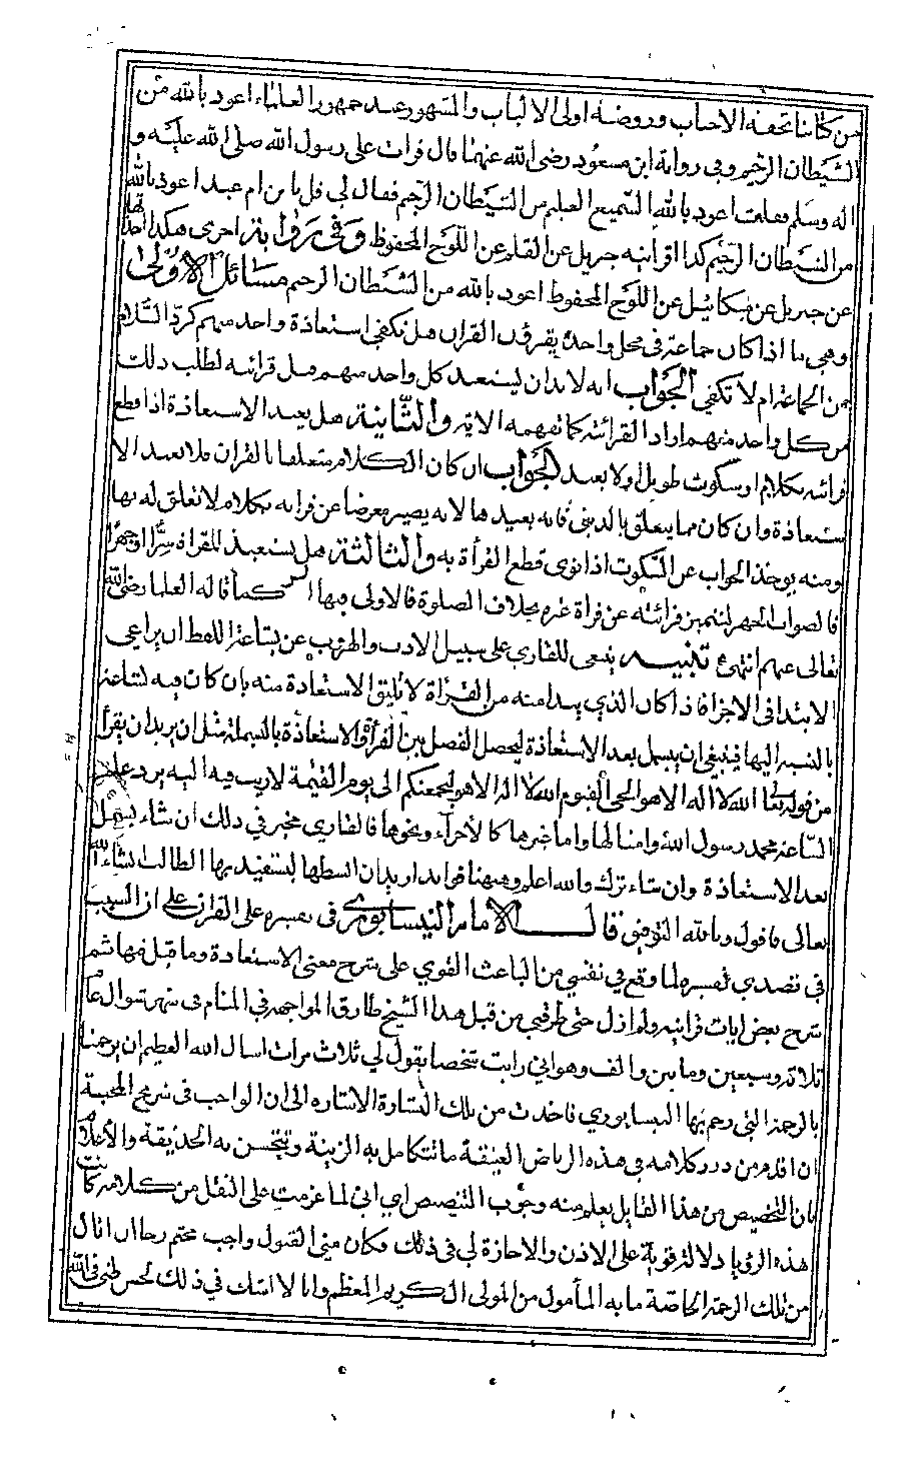 من كتابنا تحفة الاحباب وروضة اولى الالباب والمشهور عند جمهور العلماء اعوذ بالله من
الشيطان الرجيم وفى رواية ابن مسعود رضى الله عنهما قال قرات على رسول الله صلى الله عليه و
اله وسلم فقلت اعوذ بالله السميع العليم من الشيطان الرجيم فقال لى قل يا بن ام عبد اعوذ بالله
من الشيطان الرجيم كذا اقرانيه جبريل عن القلم عن اللوح المحفوظ وفى رواية اخرى هكذا اخذتها
عن جبريل عن ميكائيل عن اللوح المحفوظ اعوذ بالله من الشيطان الرجيم مسائل الاولى
وهى ما اذا كان جماعة فى محل واحد يقرؤن القران هل تكفى استعاذة واحد منهم كرد السلام
من الجماعة ام لا تكفى الجواب انه لابد ان يستعيذ كل واحد منهم قبل قرائته لطلب ذلك
من كل واحد منهم اراد القرائة كما تفهمه الاية والثانية هل يعيد الاستعاذة اذا قطع
قرائته بكلام او سكوت طويل او لا يعيد الجواب ان كان الكلام متعلقا بالقران فلا يعيد الا
ستعاذة وان كان مما يتعلق بالدنيا فانه يعيدها لانه يصير معرضا عن قرائه بكلام لا تعلق له بها
ومنه يوخذ الجواب عن السكوت اذا نوى قطع القرأة به والثالثة هل يستعيذ للقراة سرا او جهرا
فالصواب الجهر لتتميز قرائته عن قراة غيره بخلاف الصلوة فالاولى فيها السر كما قاله العلما رضى الله
تعالى عنهم انتهى تنبيه ينبغى للقارى على سبيل الادب والهرب عن بشاعة اللفظ ان يراعى
الابتدا فى الاجزاء فاذا كان الذى يبدا منه من القرأة لا تليق الاستعاذة منه بان كان فيه بشاعة
بالنسبة اليها فينبغى ان يبسمل بعد الاستعاذة ليحصل الفصل بين القرأة والاستعاذة بالبسملة مثل ان يريد ان يقرأ
من قوله تعالى الله لا اله الا هو الحى القيوم الله لا اله الا هو ليجمعنكم الى يوم القيمة لاريب فيه اليه يرد علم
الساعة محمد رسول الله وامثالها واما غيرها كالاجزاء ونحوها فالقارى مخير فى ذلك ان شاء يبسمل
بعد الاستعاذة وان شاء ترك والله اعلم وههنا فوايد اريد ان ابسطها ليستفيد بها الطالب ان شاء الله
تعالى فاقول وبالله التوفيق قال الامام النيسابورى فى تفسيره على القران على ان السبب
فى تصدى تفسيره لما وقع فى نفسى من الباعث القوى على شرح معنى الاستعاذة وما قبلها ثم
شرح بعض ايات قرانية ولم ازل حتى طرقنى من قبل هذا الشيخ طارق المواجهه فى المنام فى شهر شوال عام
ثلاثة وسبعين ومايين والف وهو انى رايت شخصا يقول لى ثلاث مرات اسال الله العظيم ان يرحمنا
بالرحمة التى رحم بها النيسابورى فاخذت من تلك البشارة الاشاره الى ان الواجب فى شرع المحبة
ان اقدم من درر كلامه فى هذه الرياض العبقة ما تتكامل به الزينة وتتحسن به الحديقة والاعلام
بان التخصيص من هذا القايل يعلم منه وجوب التنصيص اى انى لما عزمت على النقل من كلامه كانت
هذه الرؤيا دلالة قوية على الاذن والاجازة لى فى ذلك وكان منى القبول واجب محتم رجا ان انال
من تلك الرحمة الخاصة ما به المأمول من المولى الكريم المعظم وانا لا اشك فى ذلك لحسن ظنى فى الله